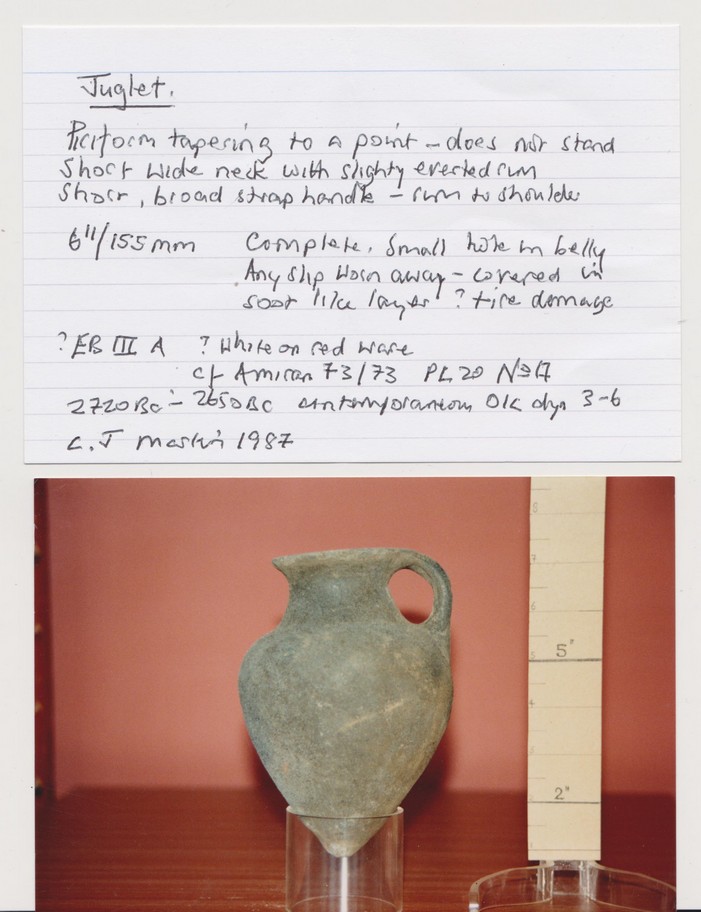 Juglet.
Piriform tapering to a point - does not stand
Short wide neck with slighty everted rim
Short, broad strap handle - rim to shoulder
6"/155mm Complete. Small hole in belly
Any slip worn away - covered in
soot like layer ? fire damage
? EB III A ? White on red ware
cf Amiran 73/73 PL 20 No 17
2720BC - 2650BC contemporaneous OK dyn 3-6
C.J 1987
8
7
6
5"
5
4
3
2"